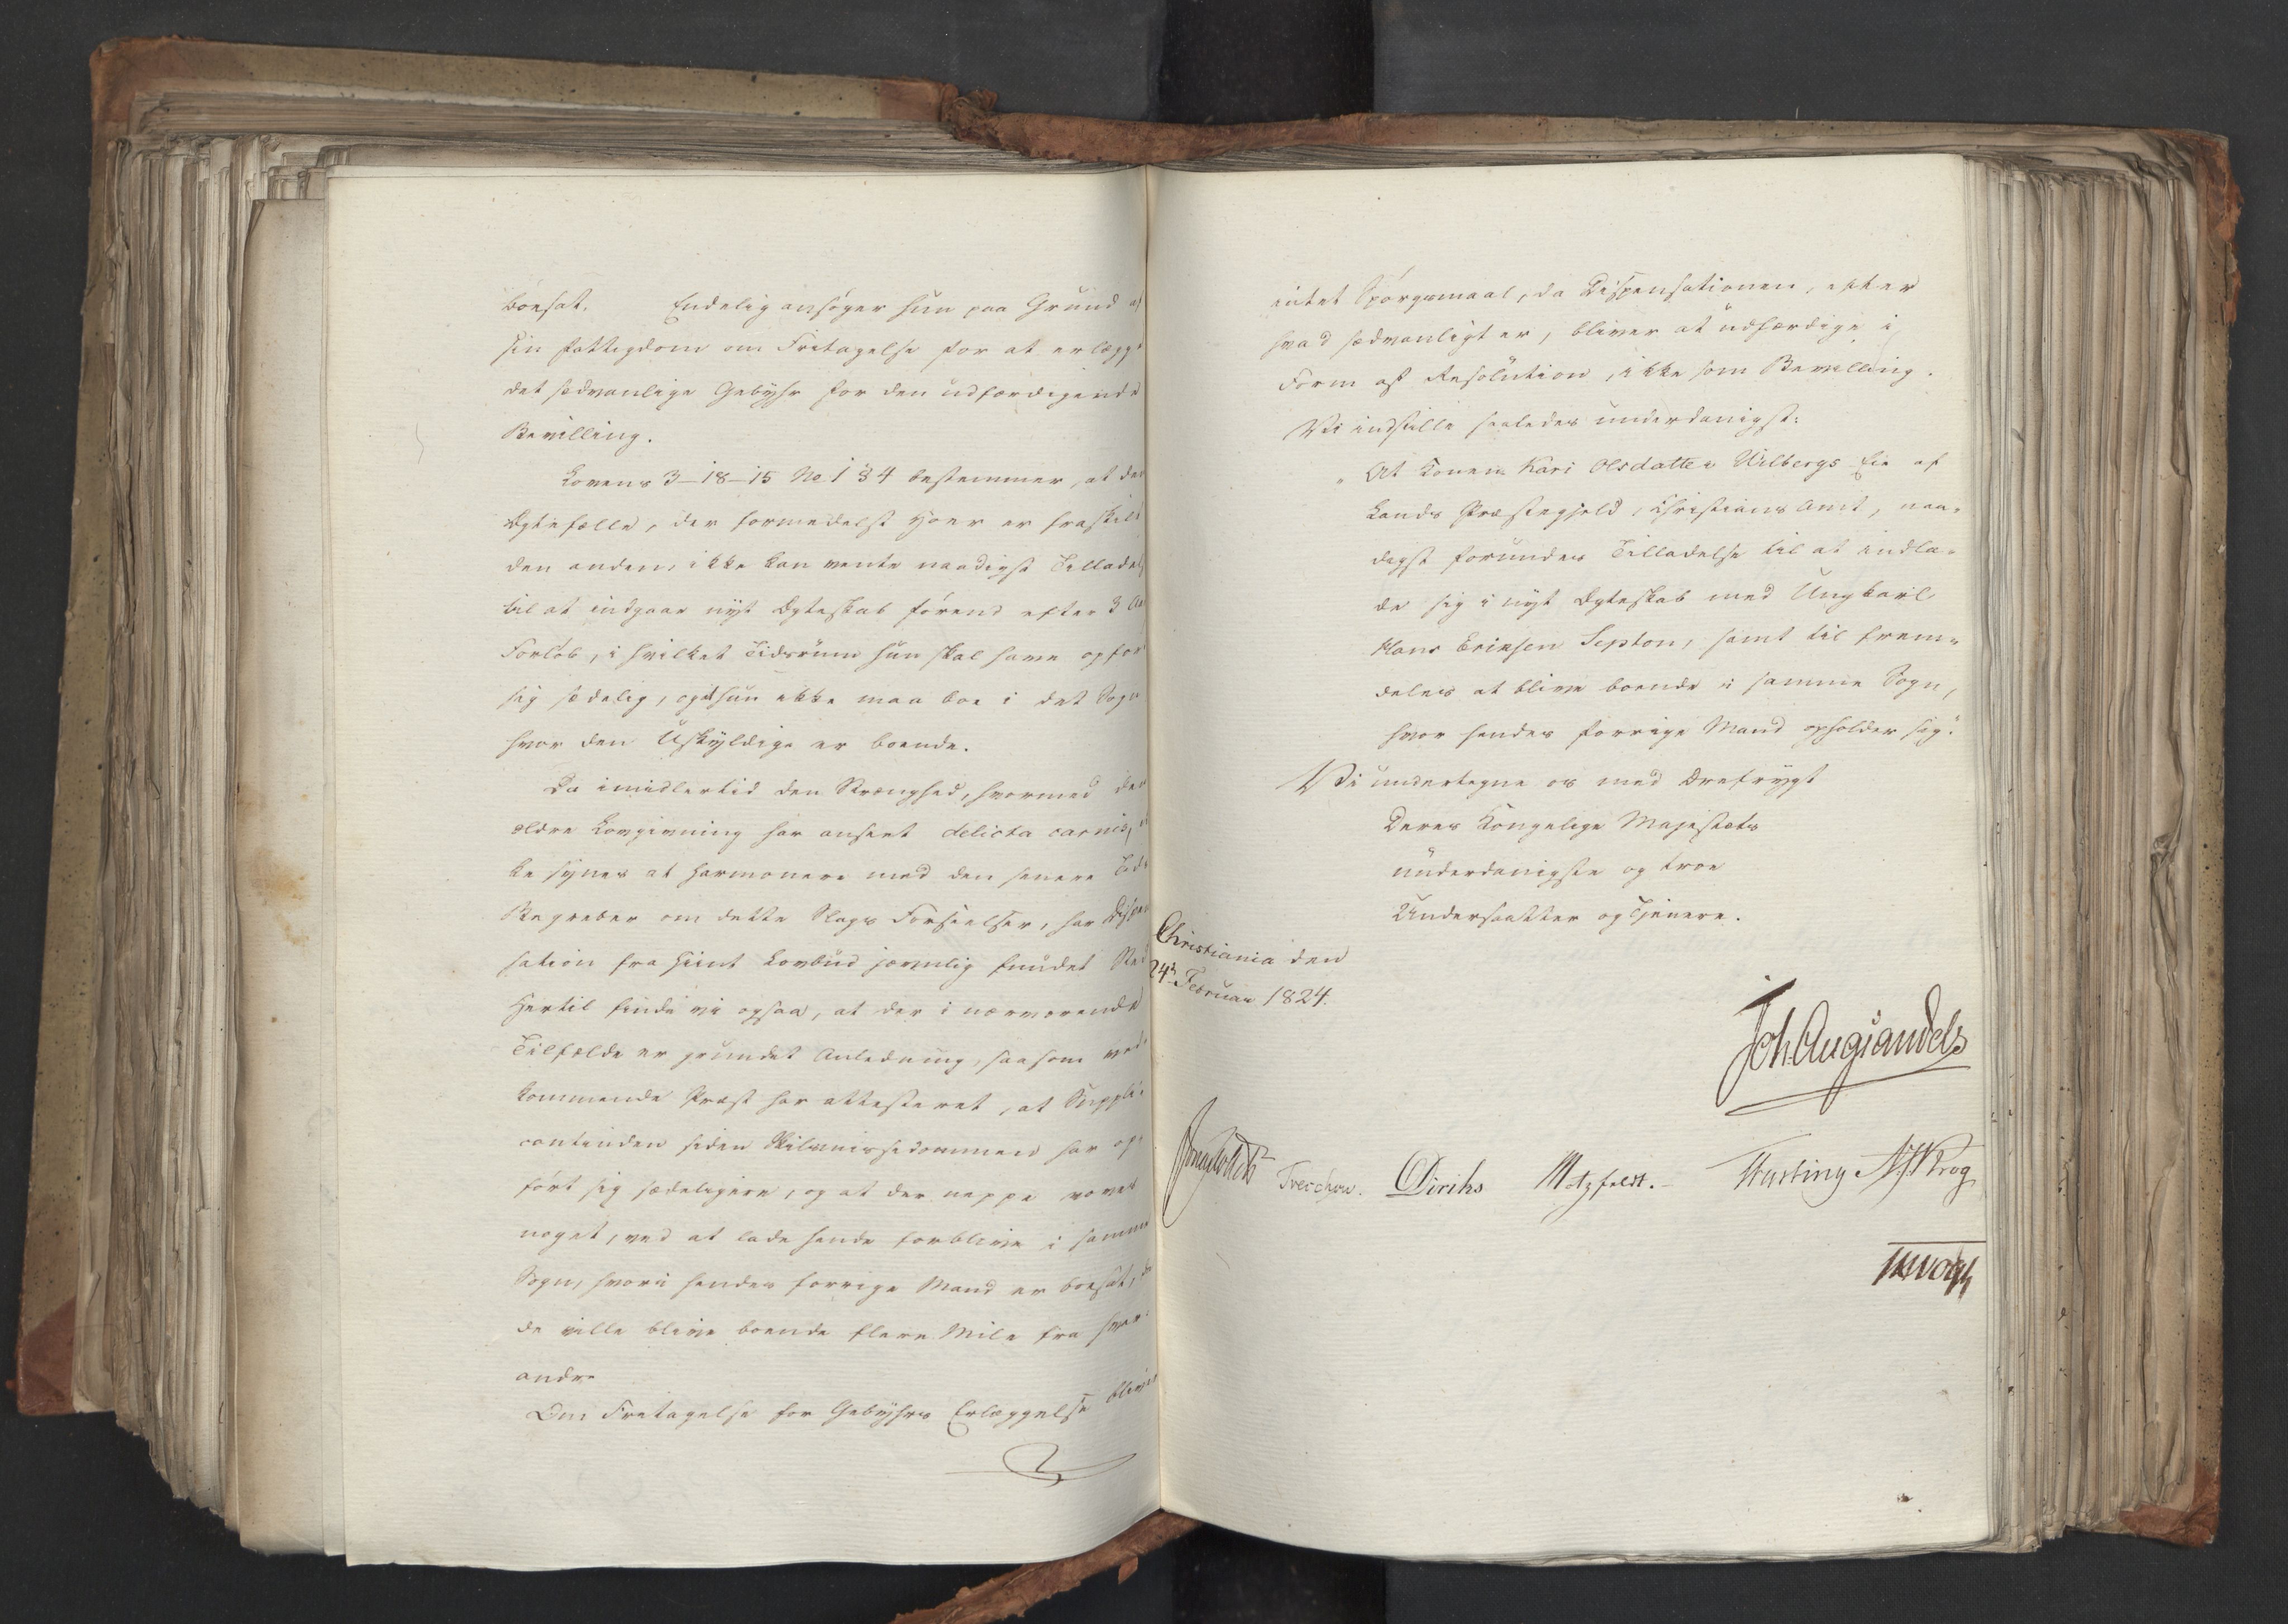 boesat. Endelig ansøger hun paa Grund af
sin Fattigdom om Fritagelse for at erlægge
det sædvanlige Gebyhr for den udfærdigende
Bevilling.
Lovens 3-18-15 No 1 § 4 bestemmer, at den
Ægtefælle, der formedelst Hoer er fraskilt
den anden, ikke kan vente naadigst Tilladelse
til at indgaae nyt Ægteskab førend efter 3 Aars
Forløb, i hvilket Tidsrum hun skal have opført
sig sædelig, og at hun ikke maa boe i det Sogn
hvor den Uskyldige er boende.
Da imidlertid den Strænghed, hvormed den
ældre Lovgivning har anseet delicta carnis, ik
ke synes at harmonere med den senere Tids
Begreber om dette Slags Forseelser, har Dispen
sation fra hiint Lovbud jævnlig fundet Sted
Hertil finde vi ogsaa, at der i nærværende
Tilfælde er grundet Anledning, saasom ved-
kommende Præst har attesteret, at Suppli-
cantinden siden Skilsmissedommen har op-
ført sig sædeligere, og at der neppe voves
noget, ved at lade hende forblive i samme
Sogn, hvori hendes forrige Mand er boesat, da
de ville blive boende flere Mile fra hver-
andre
Om Fritagelse for Gebyhrs Erlæggelse bliver
intet Spørgsmaal, da Dispensationen, efter
hvad sædvanligt er, bliver at udfærdige i
Form af Resolution, ikke som Bevilling.
Vi indstille saaledes underdanigst:
"At Konen Kari Olsdatter Wilbergs Eie af
Lands Præstegjeld, Christians Amt, naa-
digst forundes Tilladelse til at indla-
de sig i nyt Ægteskab med Ungkarl
Hans Eriksen Sopton, samt til frem-
deles at blive boende i samme Sogn,
hvor hendes forrige Mand opholder sig."
Vi undertegne os med Ærefrygt
Deres Kongelige Majestæts
underdanigste og troe
Undersaatter og Tjenere.
Christiania den
24de Februar 1824.
Joh. Aug. Sandels
Sommerhielm Treschow. Diriks Motzfeldt. Hasting NJKrog
JHVogt